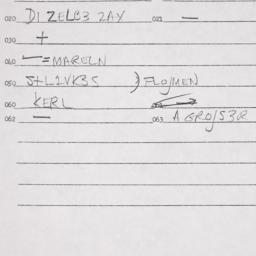 020 DI ZELC3 2AY 021 —
030 +
040 — = MARELN
050 S+L1VK35 ) FLO/MEN
060 KERL
062 — 063 A GRO/S3R